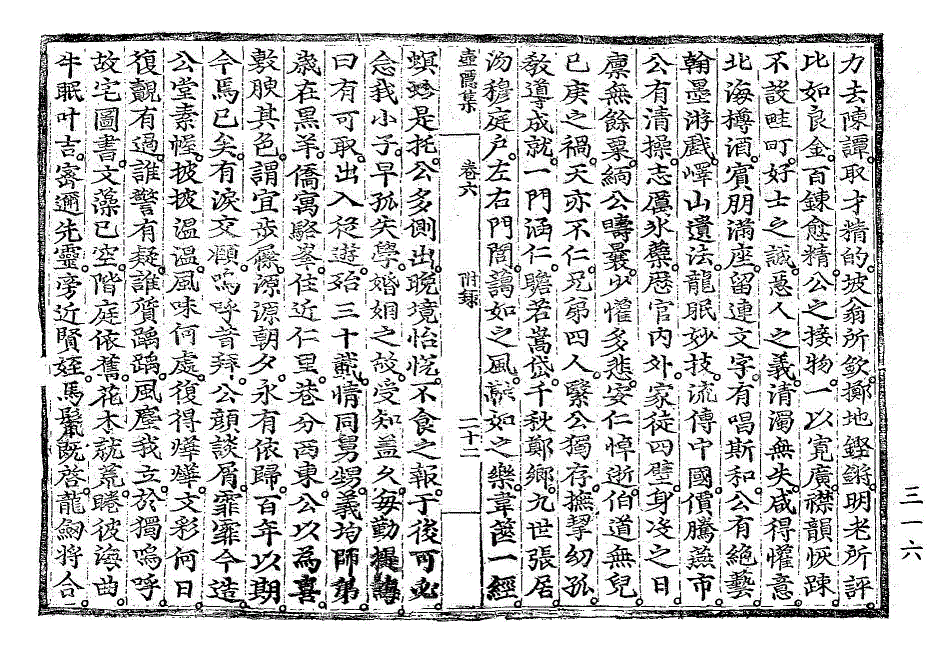 力去陳譚取才精的坡翁所欽擲地鏗鏘明老所評
比如良金百鍊愈精公之接物一以寬廣襟韻恢踈
不設畦町好士之誠惡人之義清濁無失咸得懽意
北海樽酒賓朋滿座留連文字有唱斯和公有絶藝
翰墨游戲嶧山遺法龍眠妙技流傳中國價騰燕市
公有清操志厲氷蘗歷官內外家徒四壁身沒之日
廪無餘粟緬公疇曩少懽多悲安仁悼逝伯道無兒
已庚之禍天亦不仁兄弟四人繄公獨存撫挈幼孤
敎導成就一門涵仁瞻若嵩岱千秋鄭鄕九世張居
汾穆庭戶左右門閭藹如之風龢如之樂韋籯一經
壺隱集 卷六 附錄 二十二
螟蛉是托公多側出晩境怡悅不食之報于後可必
念我小子早孤失學婚姻之故受知盖久每勤提誨
曰有可取出入從遊殆三十載情同舅甥義均師弟
歲在黑羊僑寓駱峯住近仁里巷分西東公以為喜
敷腴其色謂宜步屧源源朝夕永有依歸百年以期
今焉已矣有淚交顧嗚呼昔拜公顔談屑霏霏今造
公堂素帷披披溫溫風味何處復得燁燁文彩何日
復覿有過誰警有疑誰質踽踽風塵我立於獨嗚呼
故宅圖書文藻已空階庭依舊花木就荒睠彼海曲
牛眠叶吉密邇先靈旁近賢姪馬鬣旣啓龍紼將合
三一六